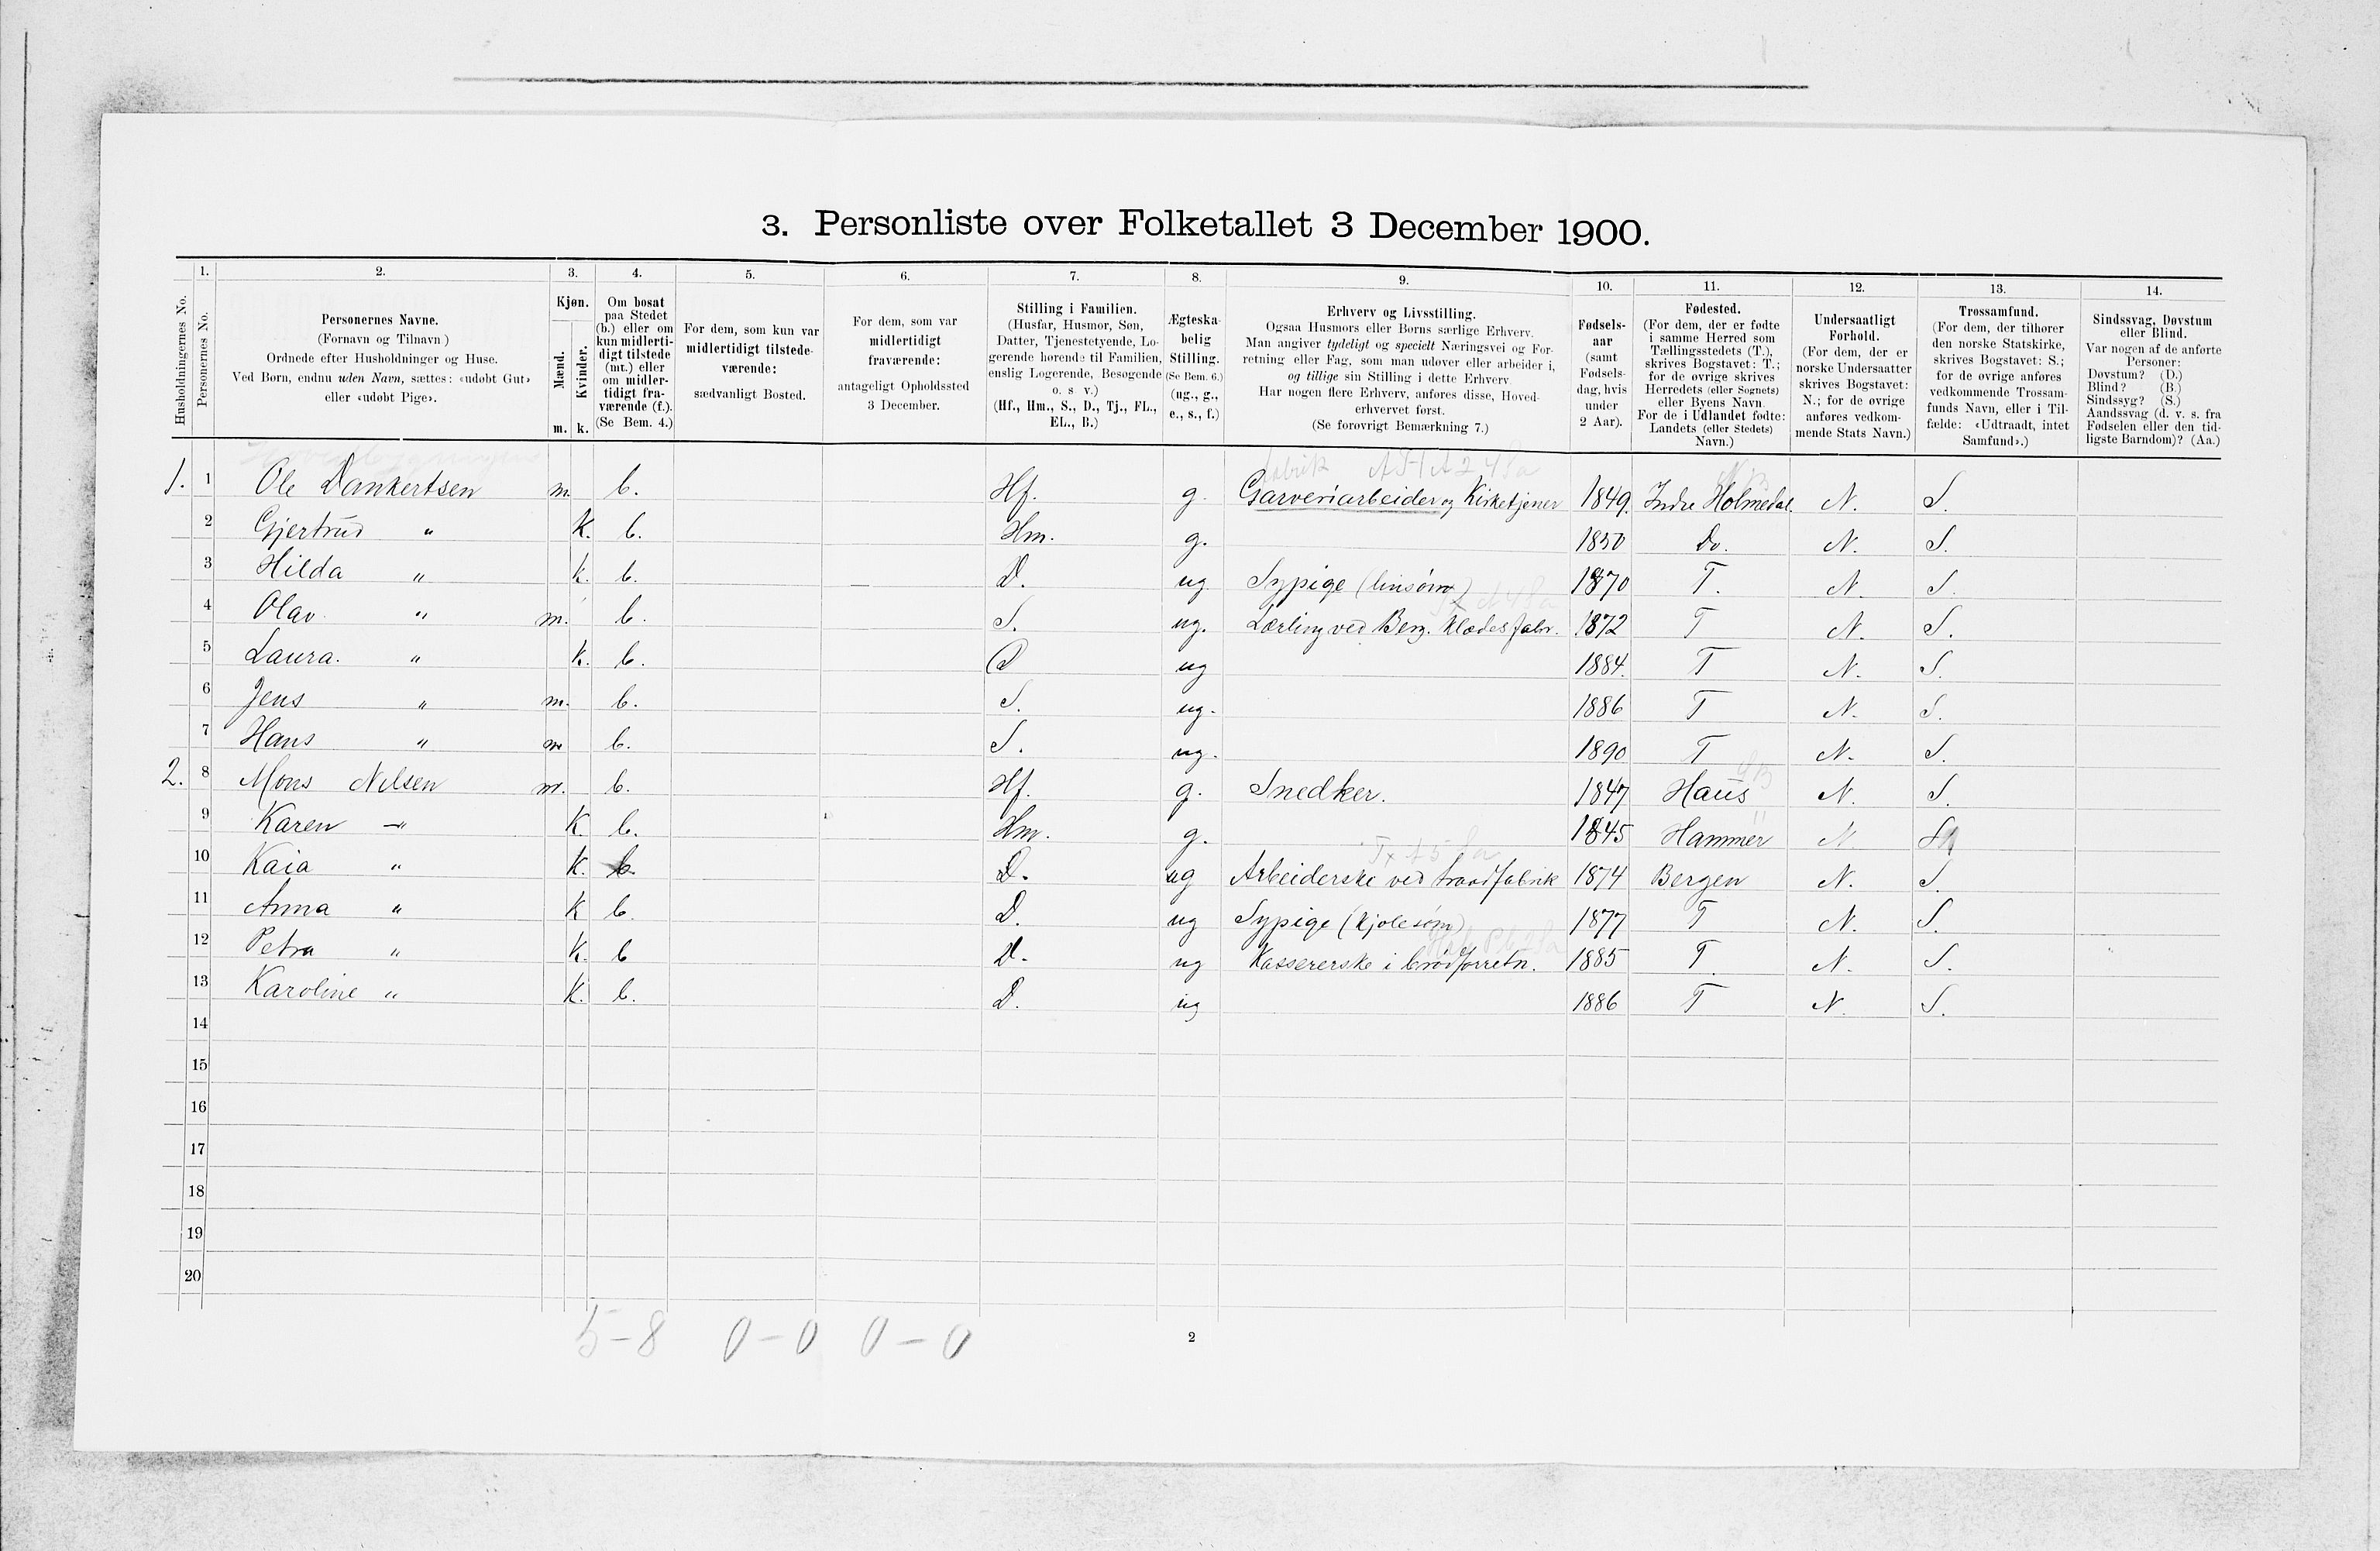 3. Personliste over Folketallet 3 December 1900.
1. 2. 3. 4. 5. 6. 7. 8. 9. 10. 11. 12. 13. 14.
Husholdningernes No.
Personernes No.
Personernes Navne.
(Fornavn og Tilnavn)
Ordnede efter Husholdninger og Huse.
Ved Børn, endnu uden Navn, sættes: «udøbt Gut»
eller «udøbt Pige».
Kjøn.
Mænd.
Kvinder.
m. k.
Om bosat
paa Stedet
(b.) eller om
kun midlerti-
digt tilstede
(mt.) eller
om midler-
tidigt fra-
værende (f.).
(Se Bem. 4.)
For dem, som kun var
midlertidigt tilstede-
værende:
sædvanligt Bosted.
For dem, som var
midlertidigt
fraværende:
antageligt Opholdssted
3 December.
Stilling i Familien.
(Husfar, Husmor, Søn,
Datter, Tjenestetyende, Lo-
gerende hørende til Familien,
enslig Logerende, Besøgende
o. s. v.)
(Hf., Hm., S., D., Tj., FL.,
EL., B.)
Ægteska-
belig
Stilling.
(Se Bem. 6.)
(ug., g.,
e., s., f.)
Erhverv og Livsstilling.
Ogsaa Husmors eller Børns særlige Erhverv.
Man angiver tydeligt og specielt Næringsvei og For-
retning eller Fag, som man udøver eller arbeider i,
og tillige sin Stilling i dette Erhverv.
Har nogen flere Erhverv, anføres disse, Hoved-
erhvervet først.
(Se forøvrigt Bemærkning 7.)
Fødsels-
aar
(samt
Fødsels-
dag, hvis
under
2 Aar).
Fødested.
(For dem, der er fødte
i samme Herred som
Tællingsstedets (T.),
skrives Bogstavet: T.;
for de øvrige skrives
Herredets (eller Sognets)
eller Byens Navn.
For de i Udlandet fødte:
Landets (eller Stedets)
Navn.)
Undersaatligt
Forhold.
(For dem, der er
norske Undersaatter
skrives Bogstavet:
N.; for de øvrige
anføres vedkom-
mende Stats Navn.)
Trossamfund.
(For dem, der tilhører
den norske Statskirke,
skrives Bogstavet: S.;
for de øvrige anføres
vedkommende Trossam-
funds Navn, eller i Til-
fælde: «Udtraadt, intet
Samfund».)
Sindssvag, Døvstum
eller Blind.
Var nogen af de anførte
Personer:
Døvstum? (D.)
Blind? (B.)
Sindssyg? (S.)
Aandssvag (d. v. s. fra
Fødselen eller den tid-
ligste Barndom)? (Aa.)
fabrik
1. 1 Ole Dankertsen m. b. Hf. g. Garveriarbeider og Kirketjener 1849. Indre Holmedal. N. S.
2 Gjertrud " K. b. Hm. g. 1850 Do. N. S.
3 Hilda " k. b. D. ug. Sypige (linsøm) 1870 T. N. S.
4 Olav " m. b. S. ug. Lærling ved Berg. Klædesfabr. 1872 T N. S.
5 Laura. " k. b. D ug 1884. T N. S.
6 Jens " m. b. S. ug. 1886 T N. S.
7 Hans " m b. S. ug. 1890 T N. S.
2. 8 Mons Nilsen m. b. Hf. g. Snedker. 1847 Haus N. S.
9 Karen " K. b. Hm. g. 1845 Hammer N. S
10 Kaia " K. b. D. ug Arbeiderske ved traadfabrik 1874 Bergen N. S.
11 Anna " K b. D. ug Sypige (kjolesøm) 1877 T N. S.
12 Petra " K. b D. ug Kassererske i brødforretn. 1885 T. N. S.
13 Karoline " K. b. D. ug 1886 T N. S.
14
15
16
17
18
19
20
5-8 0-0 0-0
2